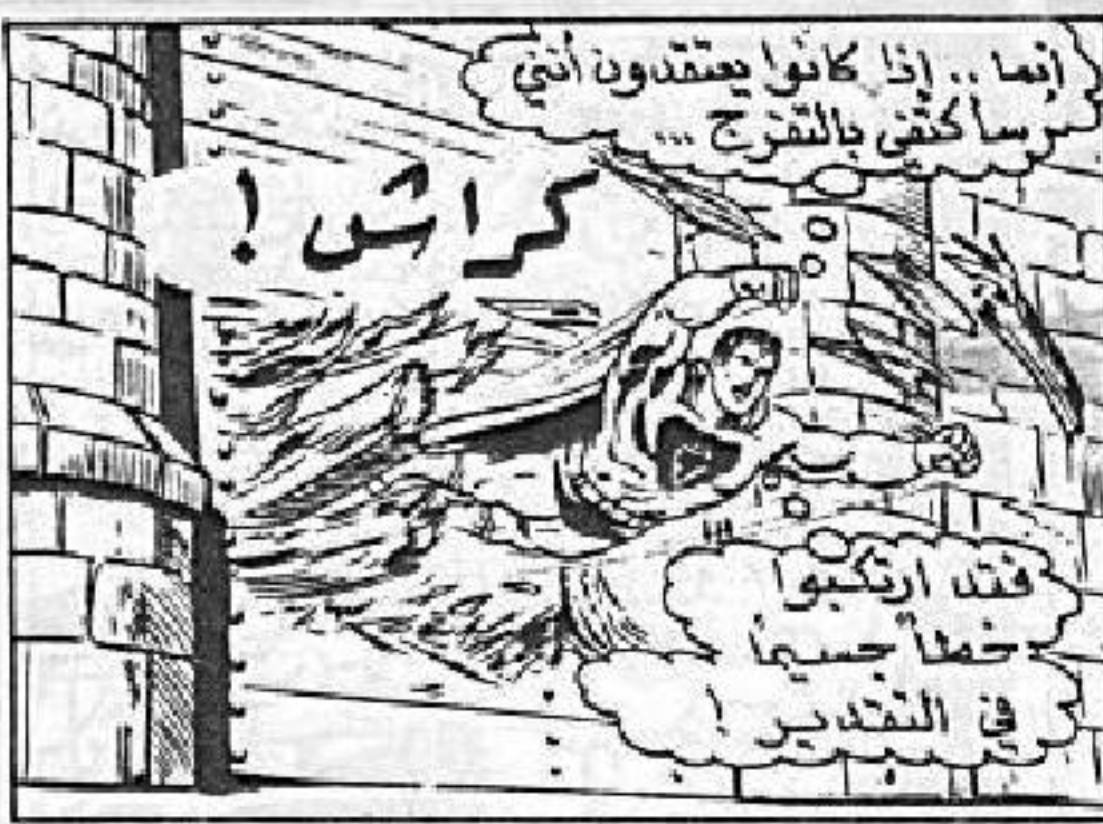 إنما .. إذا كانوا يعتقدون أنني
سأكتفي بالتفرج ...
كراش !
فقد ارتكبوا
خطأ جسيماً
في التقدير !